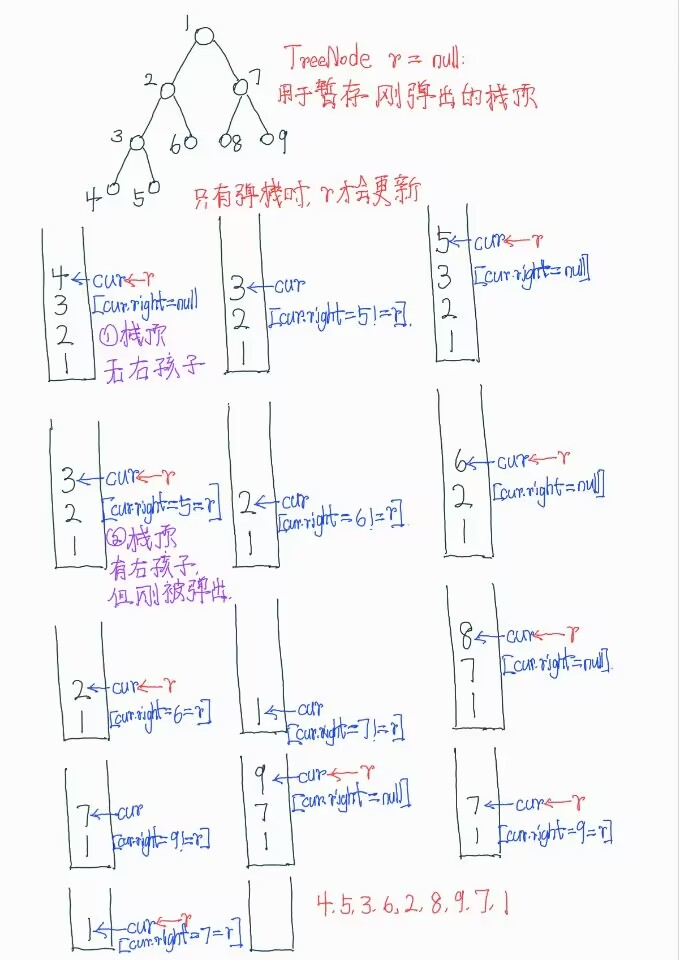 1
TreeNode r = null:
2 7
用于暂存刚弹出的栈顶
3 6 8 9
4 5
只有弹栈时, r才会更新
4 cur r
3 [cur.right=null
2 ①栈顶
1 无右孩子
3 cur
2 [cur.right=5!=r].
1
5 cur r
3 [cur.right=null]
2
1
3 cur r
2 [cur.right=5=r]
1 ②栈顶
有右孩子,
但刚被弹出.
2 cur
[cur.right=6!=r]
1
6 cur r
2 [cur.right=null]
1
2 cur r
1 [cur.right=6=r]
1 cur
[cur.right=7!=r]
8 cur r
7 [cur.right=null].
1
7 cur
1 [cur.right=9!=r]
9 cur r
7 [cur.right=null]
1
7 cur r
1 [cur.right=9=r]
1 cur r
[cur.right=7=r]
4.5.3.6.2.8.9.7.1